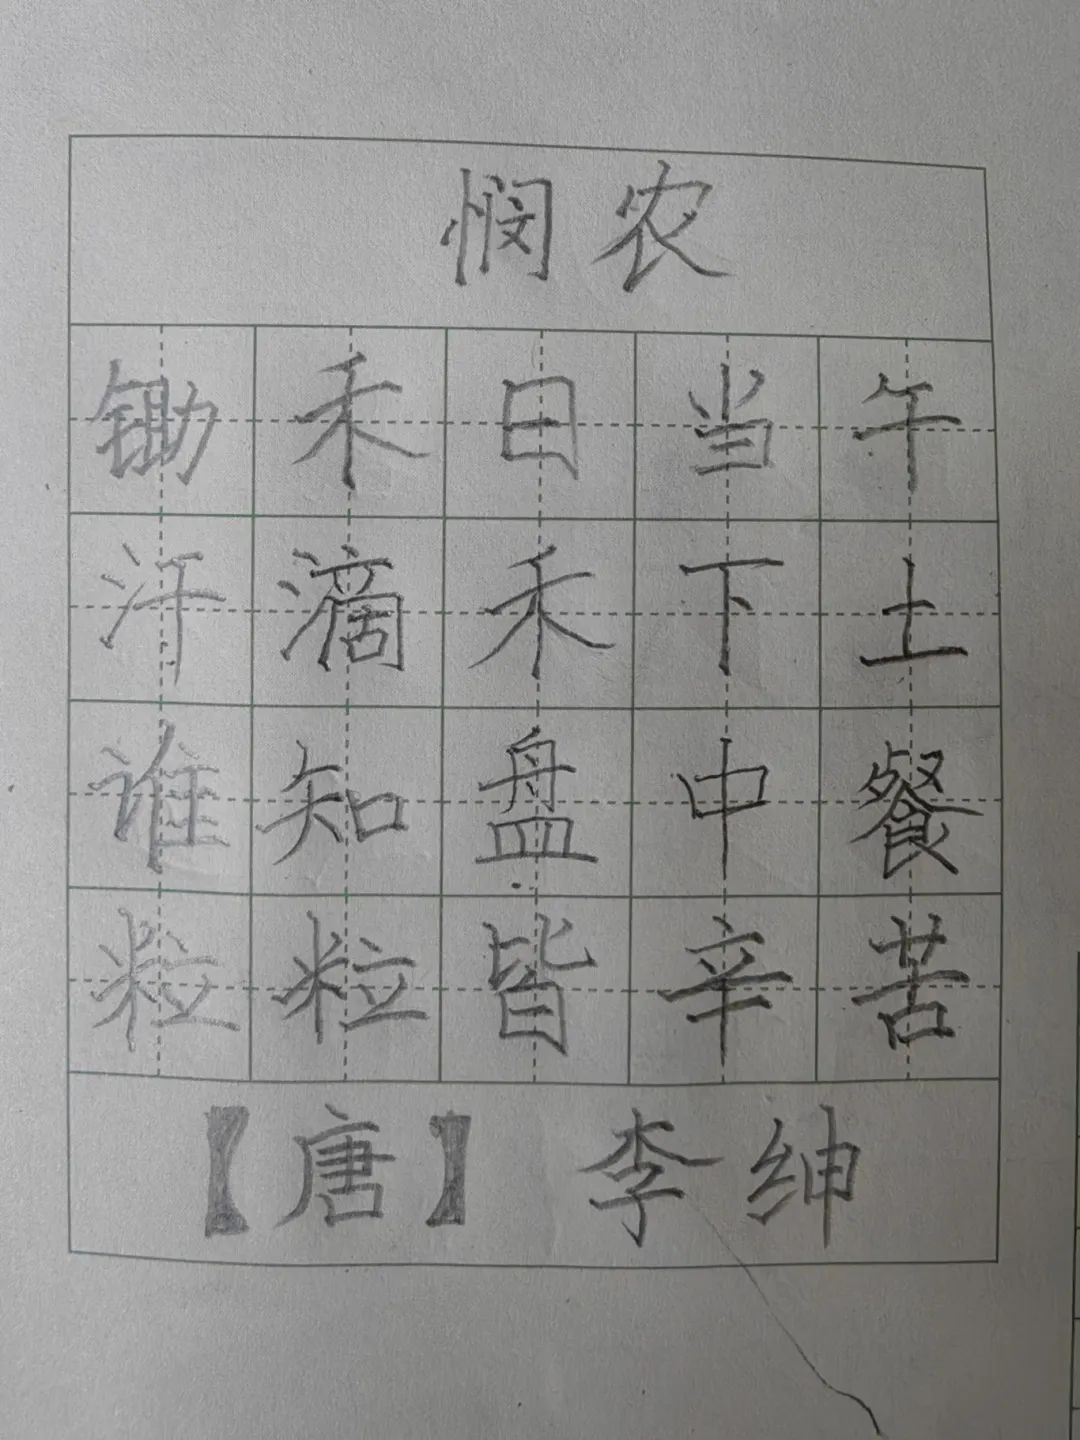 悯农
锄禾日当午
汗滴禾下土
谁知盘中餐
粒粒皆辛苦
【唐】 李绅